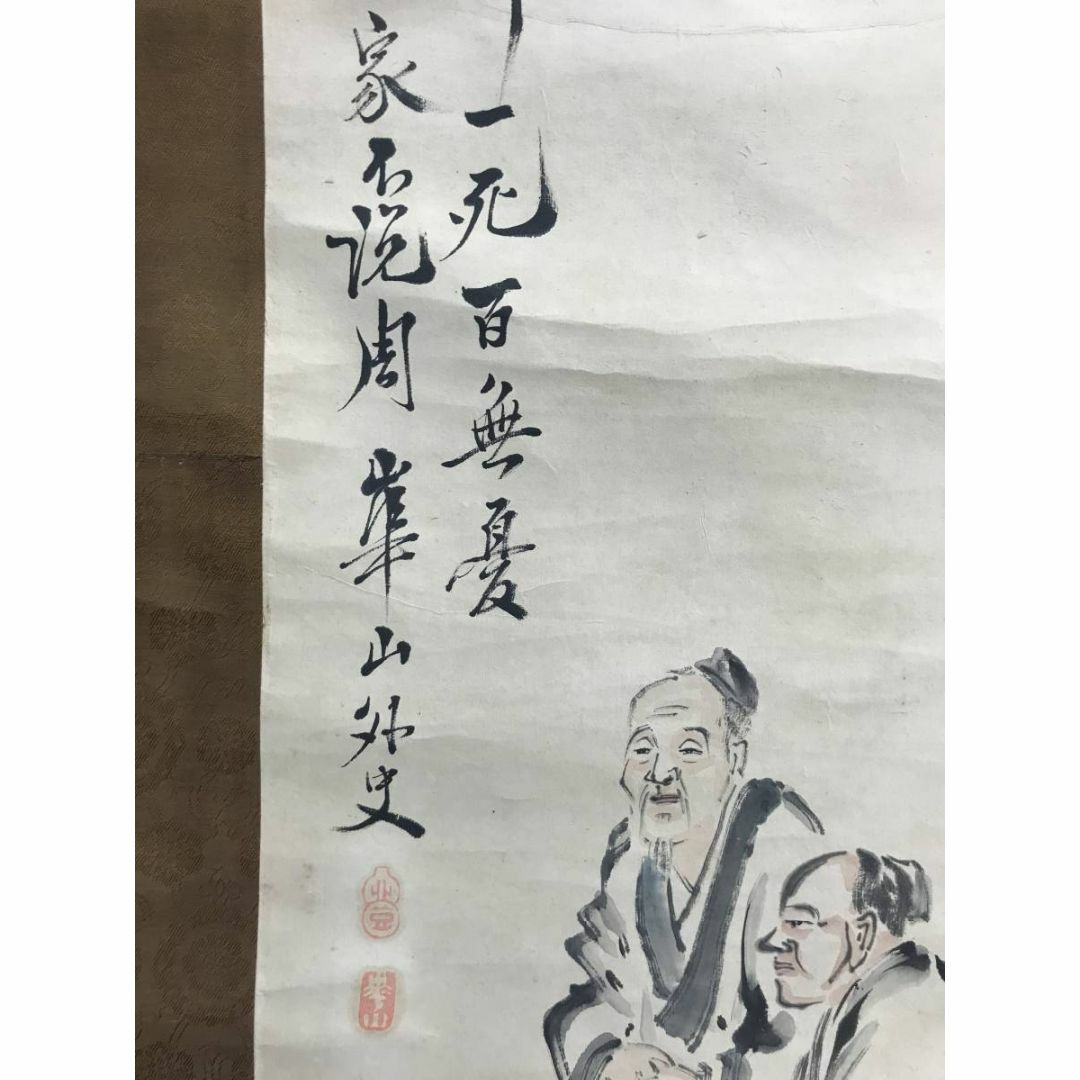 一死百無憂
家不説周 崋山外史
崋山